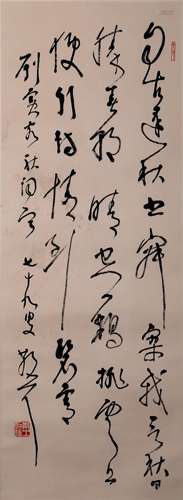 自古逢秋悲寂寥我言秋日
勝春朝晴空一鶴排雲上
便引詩情到碧霄
刘賓客秋词 七十九叟